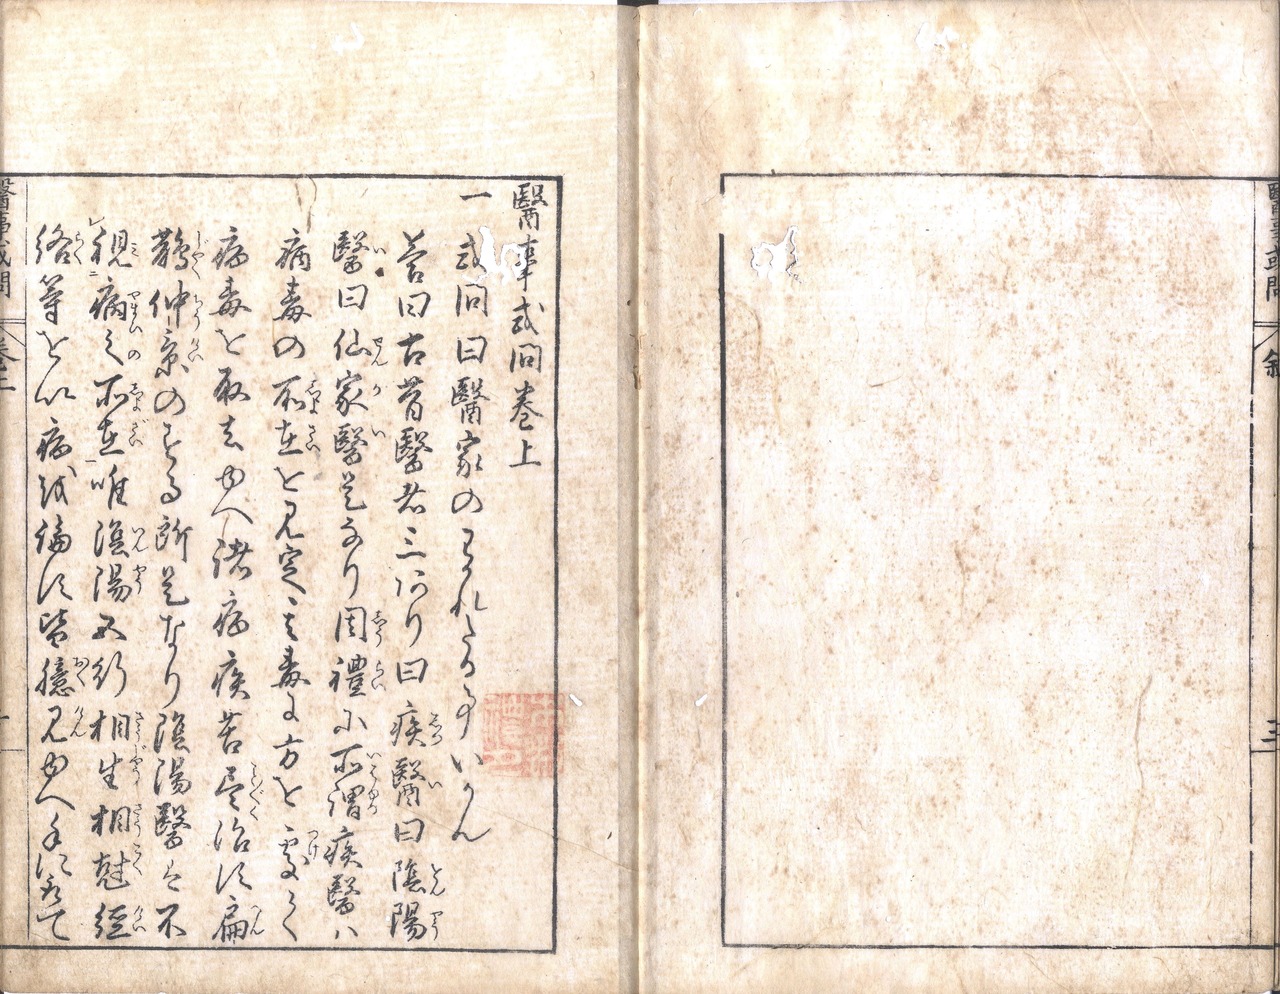 醫事或問
敍
三
醫事或問卷上
一 或問曰醫家のわれたる事いかん
答曰古昔醫者三つあり曰疾醫曰陰陽
醫曰仙家醫是なり周禮に所謂疾醫ハ
病毒の所在を見定其毒に方を處して
病毒を取去ゆへ諸病疾苦尽治す扁
鵲仲景のする所是なり陰陽醫は不
視病之所在唯陰陽五行相生相尅經
絡等を以病を論す皆臆見ゆへ手に取て
醫事或問
卷上
一